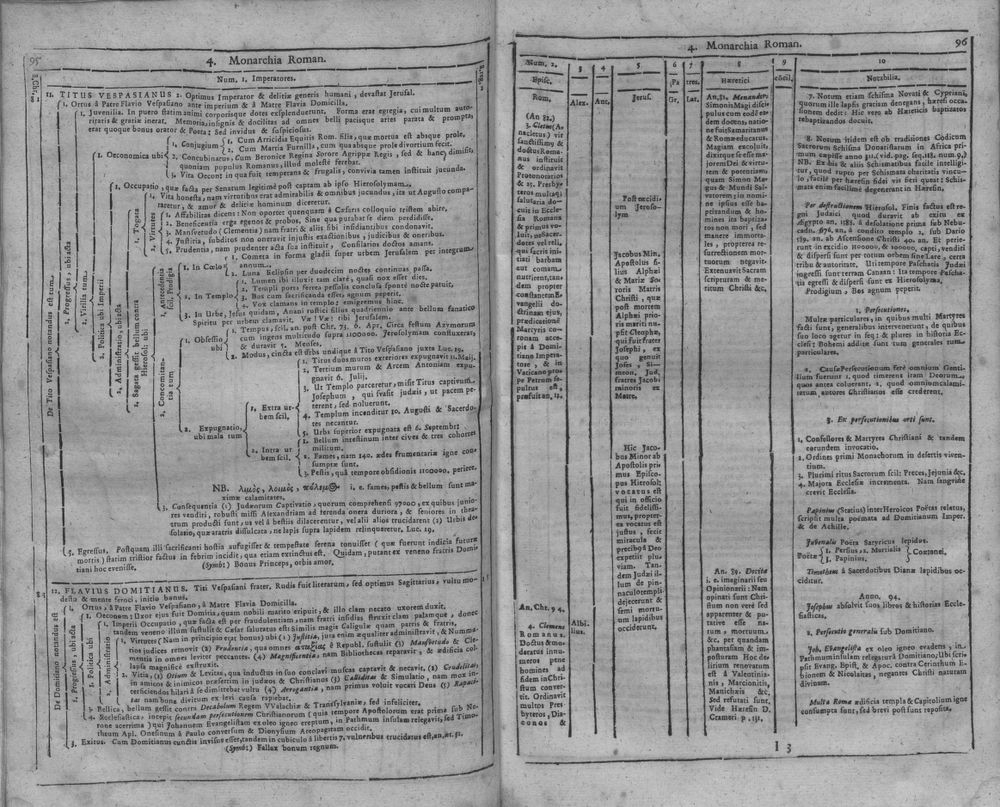 95
4. Monarchia Roman.
Num. 1. Imperatores.
11. TITUS VESPASIANUS 2. Optimus Imperator & delitiæ generis humani, devastat Jerusal.
1. Ortus à Patre Flavio Vespasiano ante imperium & à Matre Flavia Domicilla.
1. Juvenilia. In puero statim animi corporisque dotes exsplenduerunt. Forma erat egregia, cui multum auto-
ritatis & gratiæ inerat. Memoria insignis & docilitas ad omnes belli pacisque artes parata & prompta,
erat quoque bonus orator & Poeta; Sed invidus & suspiciosus.
1. Oeconomica ubi
1. Conjugium
1. Cum Arricidia Equitis Rom. filia, quæ mortua est absque prole.
2. Cum Martia Furnilla, cum qua absque prole divortium fecit.
2. Concubinatus, Cum Beronice Regina Sorore Agrippæ Regis, sed & hanc dimisit,
quoniam populus Romanus, illud moleste ferebat.
3. Vita Oecon: in qua fuit temperans & frugalis, convivia tamen instituit jucunda.
1. Occupatio, quæ facta per Senatum legitimè post captam ab ipso Hierosolymam.
1. Vita honesta, nam virtutibus erat admirabilis & omnibus jucundus, ita ut Augusto compa-
raretur, & amor & delitiæ hominum diceretur.
1. Togata
2. Virtutes
1. Affabilitas dicens: Non oportet quenquam à Cæsaris colloquio tristem abire.
2. Beneficentia erga egenos & probos. Sine qua putabat se diem perdidisse.
3. Mansvetudo (Clementia) nam fratri & aliis sibi insidiantibus condonavit.
4. Justitia, subditos non oneravit injustis exactionibus, judicibus & oneribus.
5. Prudentia, nam prudenter acta sua instituit, Consiliarios doctos amans.
1. In Cœlo
1. Cometa in forma gladii super urbem Jerusalem per integrum
annum.
2. Luna Eclipsin per duodecim noctes continuas passa.
2. In Templo
1. Lumen ibi illuxit tam clarè, quasi nox esset dies.
2. Templi porta ferrea pessulis conclusa sponte nocte patuit.
3. Bos cum sacrificanda esset, agnum peperit.
4. Vox clamans in templo: emigremus hinc.
3. In Urbe, Jesus quidam, Anani rustici filius quadriennio ante bellum fanatico
Spiritu per urbem clamavit. Væ! Væ! tibi Jerusalem.
1. Antecedentia scil. Prodigia
2. Sagata gessit bellum contra Hierosol: ubi
2. Concomitantia tum
1. Obsessio ubi
1. Tempus, scil. an. post Chr. 73. 6. Apr. Circa festum Azymorum
cum ingens multitudo supra 1100000. Jerosolymam confluxerat,
& duravit 5. Menses.
2. Modus, cincta est urbs undique à Tito Vespasiano juxta Luc. 19.
2. Expugnatio, ubi mala tum
1. Extra urbem scil.
1. Titus duos muros exteriores expugnavit 11. Maij.
2. Tertium murum & Arcem Antoniam expu-
gnavit 6. Julij.
3. Ut Templo parceretur, misit Titus captivum
Josephum, qui svasit judæis, ut pacem pe-
terent, sed noluerunt.
4. Templum incenditur 10. Augusti & Sacerdo-
tes necantur.
5. Urbs superior expugnata est 6. Septembr:
2. Intra urbem scil.
1. Bellum intestinum inter cives & tres cohortes
militum.
2. Fames, nam 140. ædes frumentariæ igne con-
sumptæ sunt.
3. Pestis, quâ tempore obsidionis 1100000. periere.
NB. λιμὸς, λοιμὸς, πόλεμος i. e. fames, pestis & bellum sunt ma-
ximæ calamitates.
3. Consequentia (1) Judæorum Captivatio, quorum comprehensi 97000, ex quibus junio-
res venditi, robusti missi Alexandriam ad ferenda onera duriora, & seniores in thea-
trum producti sunt, ut vel à bestiis dilacerentur, vel alii alios trucidarent (2) Urbis de-
solatio, quæ aratris dissulcata, ne lapis supra lapidem relinqueretur. Luc. 19,
2. Administratio, ubi acta
2. Politica ubi Imperii
2. Vitilis tum
2. Progressus, ubi acta
De Tito Vespasiano notandus est tum
3. Egressus. Postquam illi sacrificanti hostia aufugisset & tempestate serena tonuisset (quæ fuerunt indicia futuræ
mortis) statim tristior factus in febrim incidit, qua etiam extinctus est. Quidam, putant ex veneno fratris Domi-
tiani hoc evenisse. (Symb:) Bonus Princeps, orbis amor.
12. FLAVIUS DOMITIANUS. Titi Vespasiani frater. Rudis fuit literarum, sed optimus Sagittarius, vultu mo-
desto & mente feroci, initio bonus.
1. Ortus, à Patre Flavio Vespasiano, à Matre Flavia Domicilla.
1. Oeconom: Uxor ejus fuit Domitia, quam nobili marito eripuit, & illo clam necato uxorem duxit.
1. Imperii Occupatio, quæ facta est per fraudulentiam, nam fratri insidias struxit clam palamque, donec
tandem veneno illum sustulit & Cæsar salutatus est similis magis Caligulæ quam patris & fratris,
1. Virtutes (Nam in principio erat bonus) ubi (1) Justitia, jura enim æqualiter administravit, & Numma-
rios judices removit (2) Prudentia, qua omnes ἀυταρξίας è Republ. sustulit (3) Mansvetudo & Cle-
mentia in omnes leviter peccantes. (4) Magnificentia, nam Bibliothecas reparavit, & ædificia col-
lapsa magnificè exstruxit.
2. Vitia, (1) Otium & Levitas, qua inductus in suo conclavi muscas captavit & necavit. (2) Crudelitas,
in amicos & inimicos præsertim in judæos & Christianos (3) Calliditas & Simulatio, nam mox in-
terficiendos hilari à se dimittebat vultu (4) Arrogantia, nam primus voluit vocari Deus (5) Rapaci-
tas nam bona divitum ex levi causa rapiebat.
3. Bellica, bellum gessit contra Decabolum Regem Wallachiæ & Transylvaniæ, sed infeliciter.
4. Ecclesiastica: incepit secundam persecutionem Christianorum (quia tempore Apostolorum erat prima sub Ne-
rone acerrima) qui Johannem Evangelistam ex oleo igneo ereptum, in Pathmum insulam relegavit, sed Timo-
theum Apl. Onesimum à Paulo conversum & Dionysium Areopagitam occidit.
De Domitiano notandus est
2. Progressus, ubi acta
2. Politica ubi
2. Administratio
3. Exitus. Cum Domitianus cunctis invisus esset, tandem in cubiculo à libertis 7. vulneribus trucidatus est, an. æt. 51.
(Symb:) Fallax bonum regnum.
4. Monarchia Roman.
96
Num. 2.
Episc.
Rom.
(An 82.)
3. Cletus (A-
nacletus) vir
sanctissimus &
doctus Roma-
nus instituit
& ordinavit
Protonotarios
& 25. Presbyte-
ros multaq;
salutaria do-
cuit in Eccle-
sia Romana
& primus vo-
luit, ne sacer-
dotes vel reli-
qui sacris ini-
tiati barbam
aut comam
nutrirent, tan-
dem propter
constantem E-
vangelii do-
ctrinam ejus,
prædicatione
Martyris co-
ronam acce-
pit à Domi-
tiano Impera-
tore, & in
Vaticano pro-
pe Petrum se-
pultus est,
præfuit an. 12.
An. Chr. 94.
4. Clemens
Romanus.
Doctus & mo-
deratus innu-
meros pene
homines ad
fidem in Chri-
stum conver-
tit. Ordinavit
multos Pres-
byteros, Dia-
conos &
3
Alex.
Albilius.
4
Ant.
5.
Jerus.
Post excidium Jerosolym
Jacobus Min.
Apostolus filius Alphæi
& Mariæ Sororis Matris
Christi, quæ
post mortem
Alphæi prioris mariti nupsit Cleophæ,
qui fuit frater
Josephi, ex
quo genuit
Joses, Simeon. Jud.
fratres Jacobi
minoris ex
Matre.
Hic Jacobus Minor ab
Apostolis primus Episcopus Hierosol:
vocatus est
qui in officio
fuit fidelissimus, propterea vocatus est
justus, fecit
miracula &
precibus Deo
expetiit pluviam. Tandem Judæi illum de pinnaculo templi
dejecerunt &
semi mortuum lapidibus
occiderunt.
6
Pa
Gr.
7
tres.
Lat.
8
Hæretici
An. 81. Menander
Simonis Magi discipulus cum eodem
eadem docens, natione fuit Samaritanus
& Romæ educatus.
Magiam excoluit,
dixitque se esse majorem Dei & virtutem & potentiam,
quam Simon Magus & Mundi Salvatorem; in nomine ipsius esse
baptizandum & homines ita baptizatos non mori, sed
manere immortales, propterea resurrectionem mortuorum negavit.
Extenuavit Sacram
Scripturam & mentitum Christi &c.
An. 89. Docitæ
i. e. imaginarii seu
Opinionerii: Nam
opinati sunt Christum non verè sed
apparenter & putative esse natum + mortuum.
&c. per quandam
phantasiam & imposturam Hoc delirium renovatum
est à Valentinianis, Marcionitis,
Manichæis &c.
Sed refutati sunt,
Vide Hæresin D.
Crameri p. 151.
9
cōcil.
10
Notabilia.
7. Notum etiam schisma Novati & Cypriani,
quorum ille lapsis gratiam denegans, hæresi occasionem dedit: Hic vero ab Hæreticis baptizatos
rebaptizandos docuit.
8. Novum itidem est ob traditiones Codicum
Sacrorum Schisma Donatistarum in Africa primum capisse anno 311. (vid. pag. seq. 118. num. 9.)
NB. Ex his & aliis Schismatibus facile intelligitur, quod rupto per Schismata charitatis vinculo, facile per hæresin fidei vis fieri queat: Schismata enim facillimè degenerant in Hæresin.
Per destructionem Hierosol. Finis factus est regni Judaici quod duravit ab exitu ex
Ægypto an. 1588. à desolatione prima sub Nebucadn. 676. an. à condito templo 2. sub Dario
589. an. ab Ascensione Christi 40. an. Et perierunt in excidio 1100000, & 100000, capti, venditi
& dispersi sunt per totum orbem sine Lare, certa
tribu & autoritate, Uti tempore Paschatis Judæi
ingressi sunt terram Canaan: Ita tempore Paschatis egressi & dispersi sunt ex Hierosolyma,
Prodigium, Bos agnum peperit.
1. Persecutiones,
Mulæ particulares, in quibus multi Martyres
facti sunt, generalibus intervenerunt, de quibus
suo loco agetur in seq: & plures in historia Ecclesi: Bohemi additæ sunt tum generales tum
particulares.
2. Causa Persecutionum ferè omnium Gentilium fuerunt 1. quod timerent iram Deorum,
quos antea coluerant. 2. quod omnium calamitatum autores Christianos esse crederent.
3. Ex persecutionibus orti sunt.
1. Confessores & Martyres Christiani & tandem
eorundem invocatio.
2. Ordines primi Monachorum in desertis viventium.
3. Plurimi ritus Sacrorum scil: Preces, Jejunia &c.
4. Majora Ecclesiæ incrementa. Nam sangvine
crevit Ecclesia.
Papinius (Statius) inter Heroicos Poëtas relatus,
scripsit multa poëmata ad Domitianum Imper.
& de Achille.
Juvenalis Poëta Satyricus lepidus.
Poëtæ
1. Persius, 2. Martialis
3. Papinius.
Coætanei.
Timotheus à Sacerdotibus Dianæ lapidibus occiditur.
Anno. 94.
Josephus absolvit suos libros & historias Ecclesiasticas.
2. Persecutio generalis sub Domitiano.
Joh. Evangelista ex oleo igneo evadens, in
Pathmum insulam relegatur à Domitiano, Ubi scripsit Evang. Epist. & Apoc. contra Cerinthum Ebionem & Nicolaitas, negantes Christi naturam
divinam.
Multa Romæ ædificia templa & Capitolium igne
consumpta sunt, sed brevi post sunt reposita.
I 3